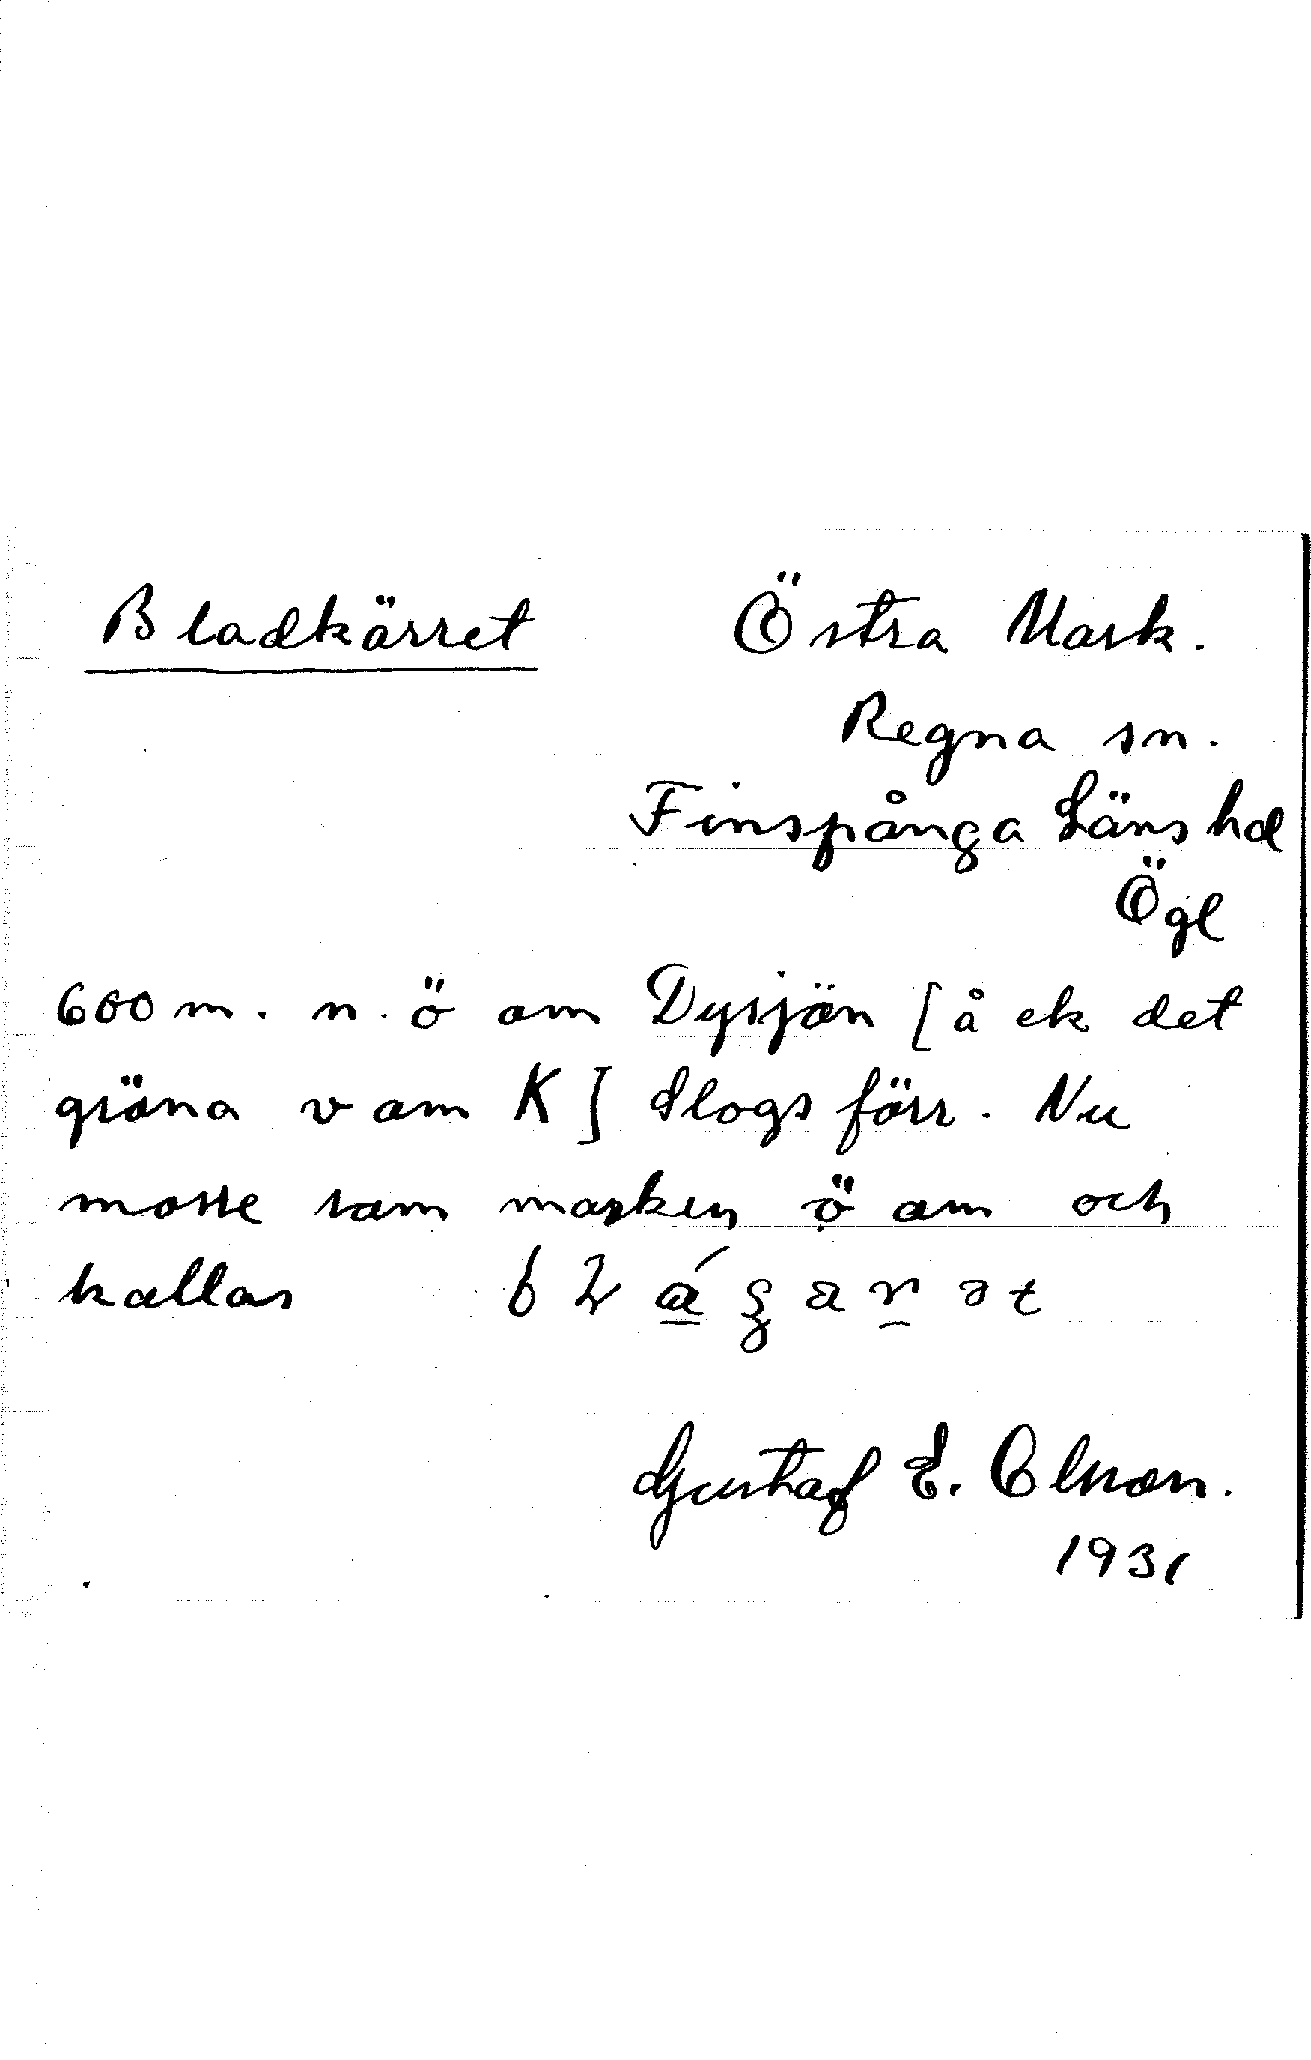 Bladkärret Östra Mark.
Regna sn.
Finspånga Läns hd
Ögl
600 m. n. ö om Dysjön [å ek det
gröna v om K] Slogs förr. Nu
mosse som marken ö om och
kallas
Gustaf E. Olsson.
1931